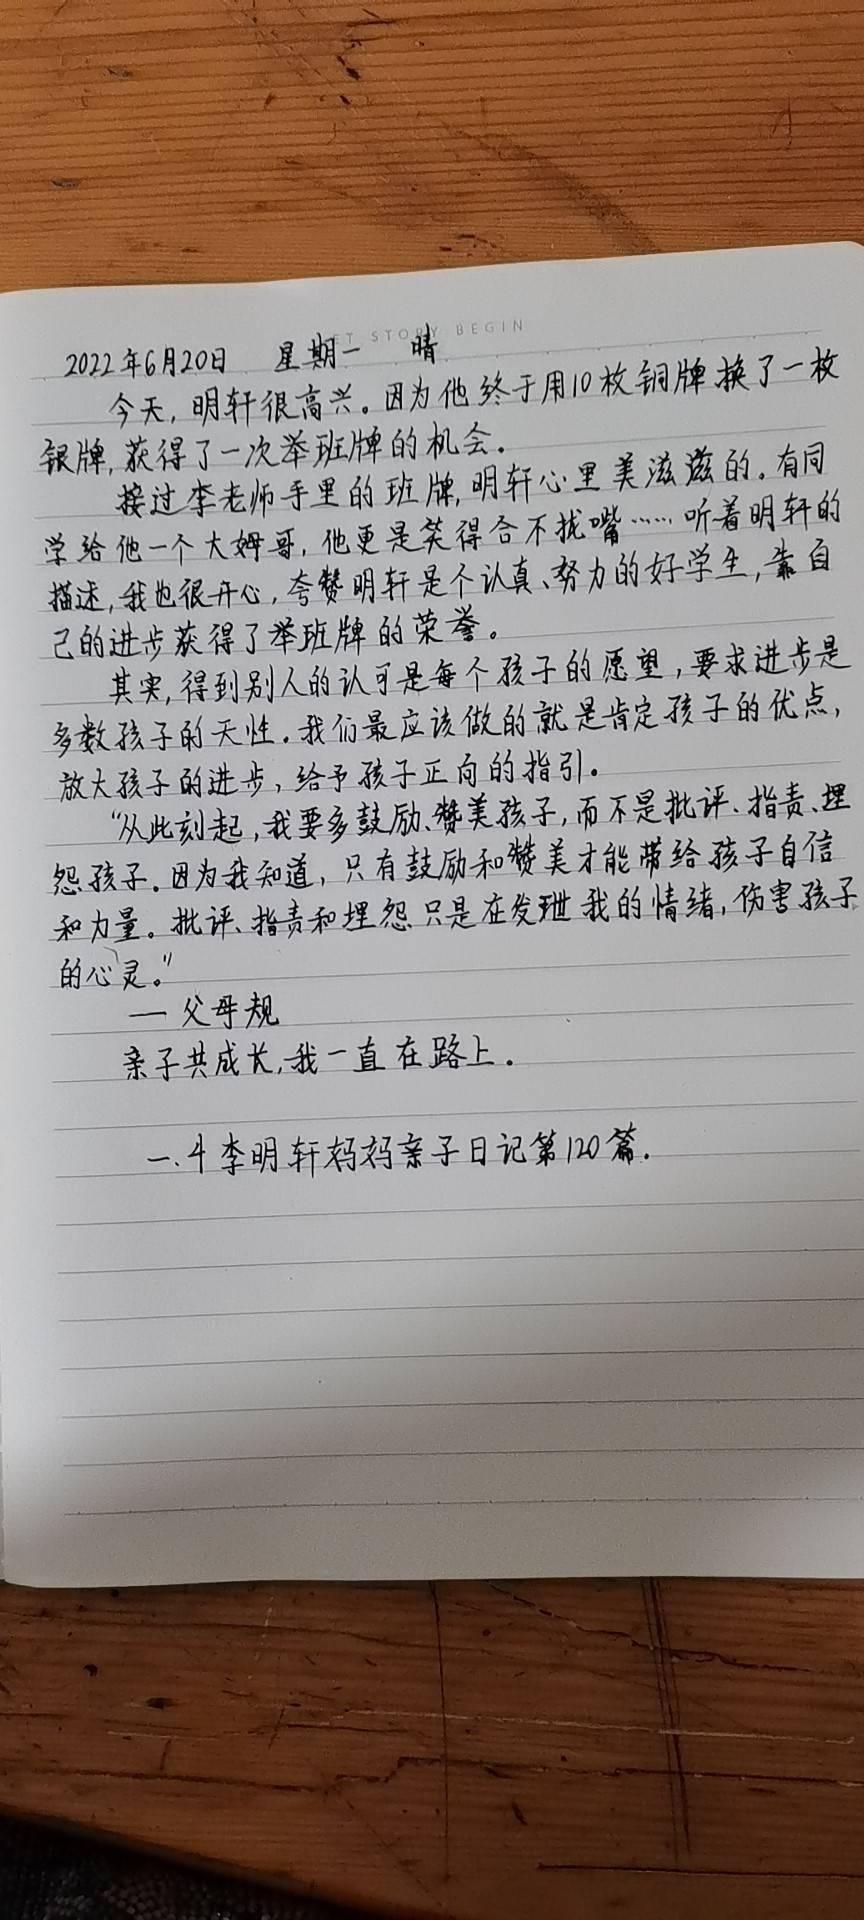 LET STORY BEGIN
2022年6月20日 星期一 晴
今天,明轩很高兴。因为他终于用10枚铜牌换了一枚
银牌,获得了一次举班牌的机会。
接过李老师手里的班牌,明轩心里美滋滋的。有同
学给他一个大姆哥,他更是笑得合不拢嘴……听着明轩的
描述,我也很开心,夸赞明轩是个认真、努力的好学生,靠自
己的进步获得了举班牌的荣誉。
其实,得到别人的认可是每个孩子的愿望,要求进步是
多数孩子的天性。我们最应该做的就是肯定孩子的优点,
放大孩子的进步,给予孩子正向的指引。
“从此刻起,我要多鼓励、赞美孩子,而不是批评、指责、埋
怨孩子。因为我知道,只有鼓励和赞美才能带给孩子自信
和力量。批评、指责和埋怨只是在发泄我的情绪,伤害孩子
的心灵。”
— 父母规
亲子共成长,我一直在路上。
一.4李明轩妈妈亲子日记第120篇.